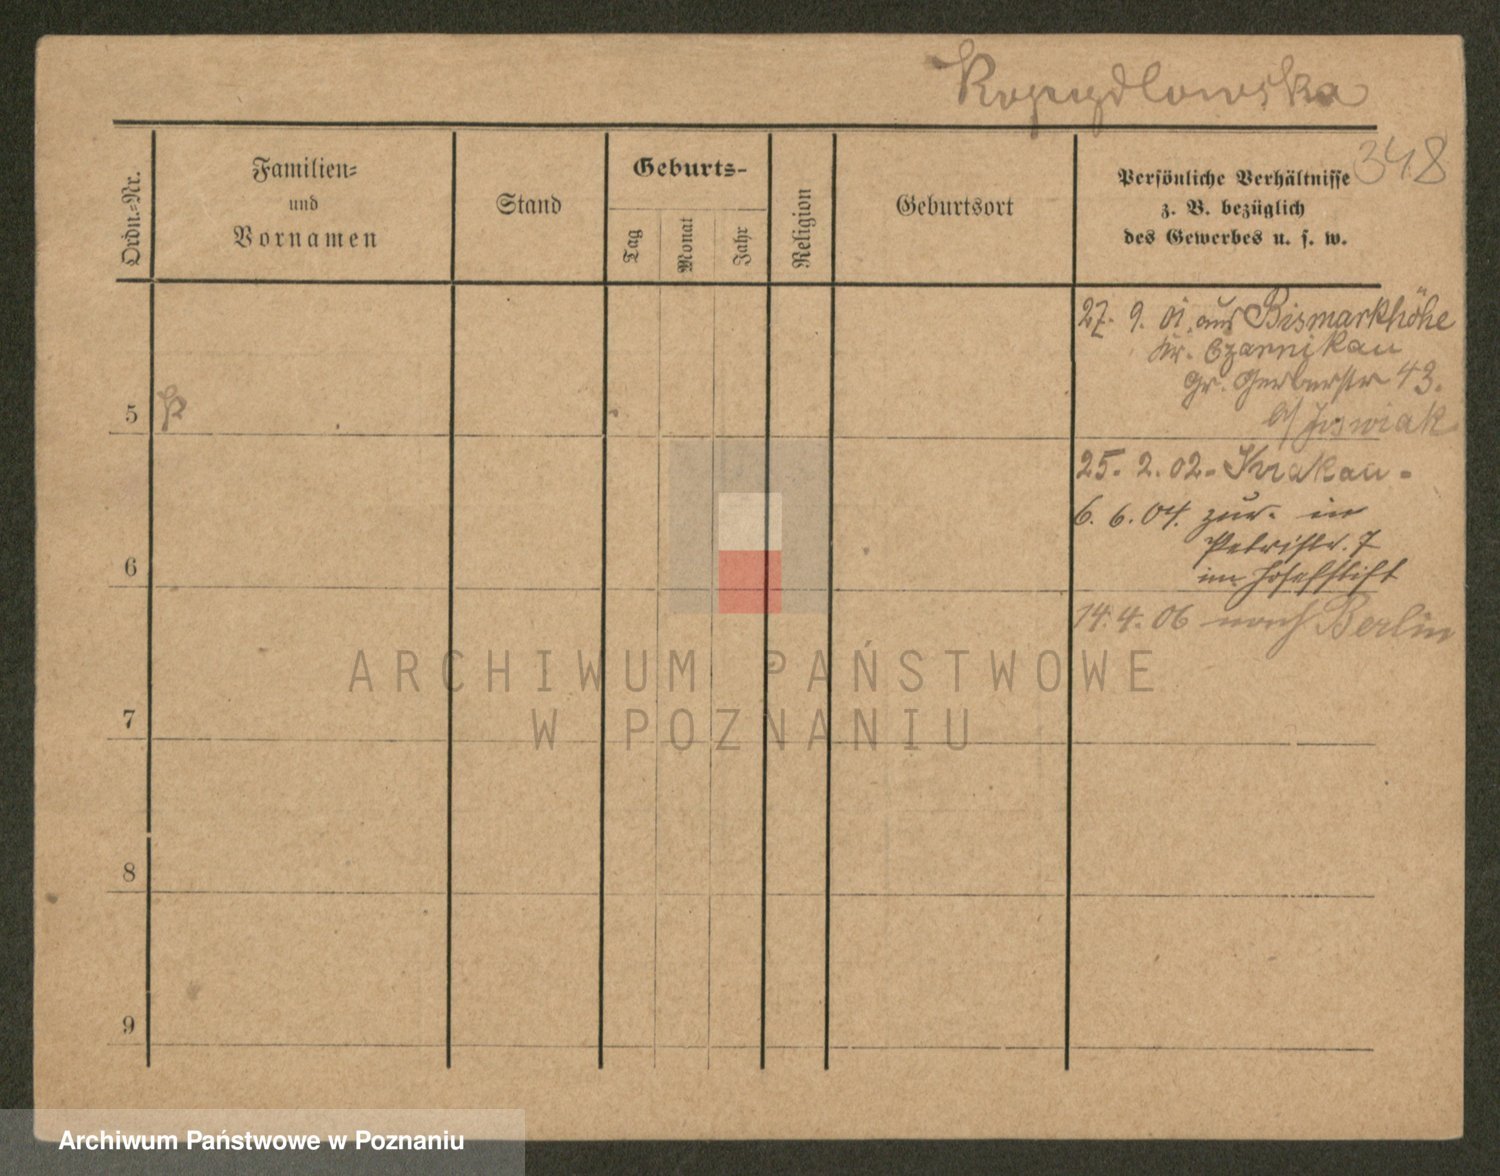 Kopeydlowska
348
Ordn.=Nr.
Familien=
und
Vornamen
Stand
Geburts=
Tag
Monat
Jahr
Religion
Geburtsort
Persönliche Verhältnisse
z. B. bezüglich
des Gewerbes u. s. w.
27. 9. 01. aus Bismarkhöhe
Kr. Czarnikau
Gr. Gerberstr 43.
b/ Joswiak
5
25. 2. 02. Krakau.
6. 6. 04. zur. in
Petristr. 7
im Josefstift
6
14. 4. 06 nach Berlin
ARCHIWUM PAŃSTWOWE
W POZNANIU
7
8
9
Archiwum Państwowe w Poznaniu